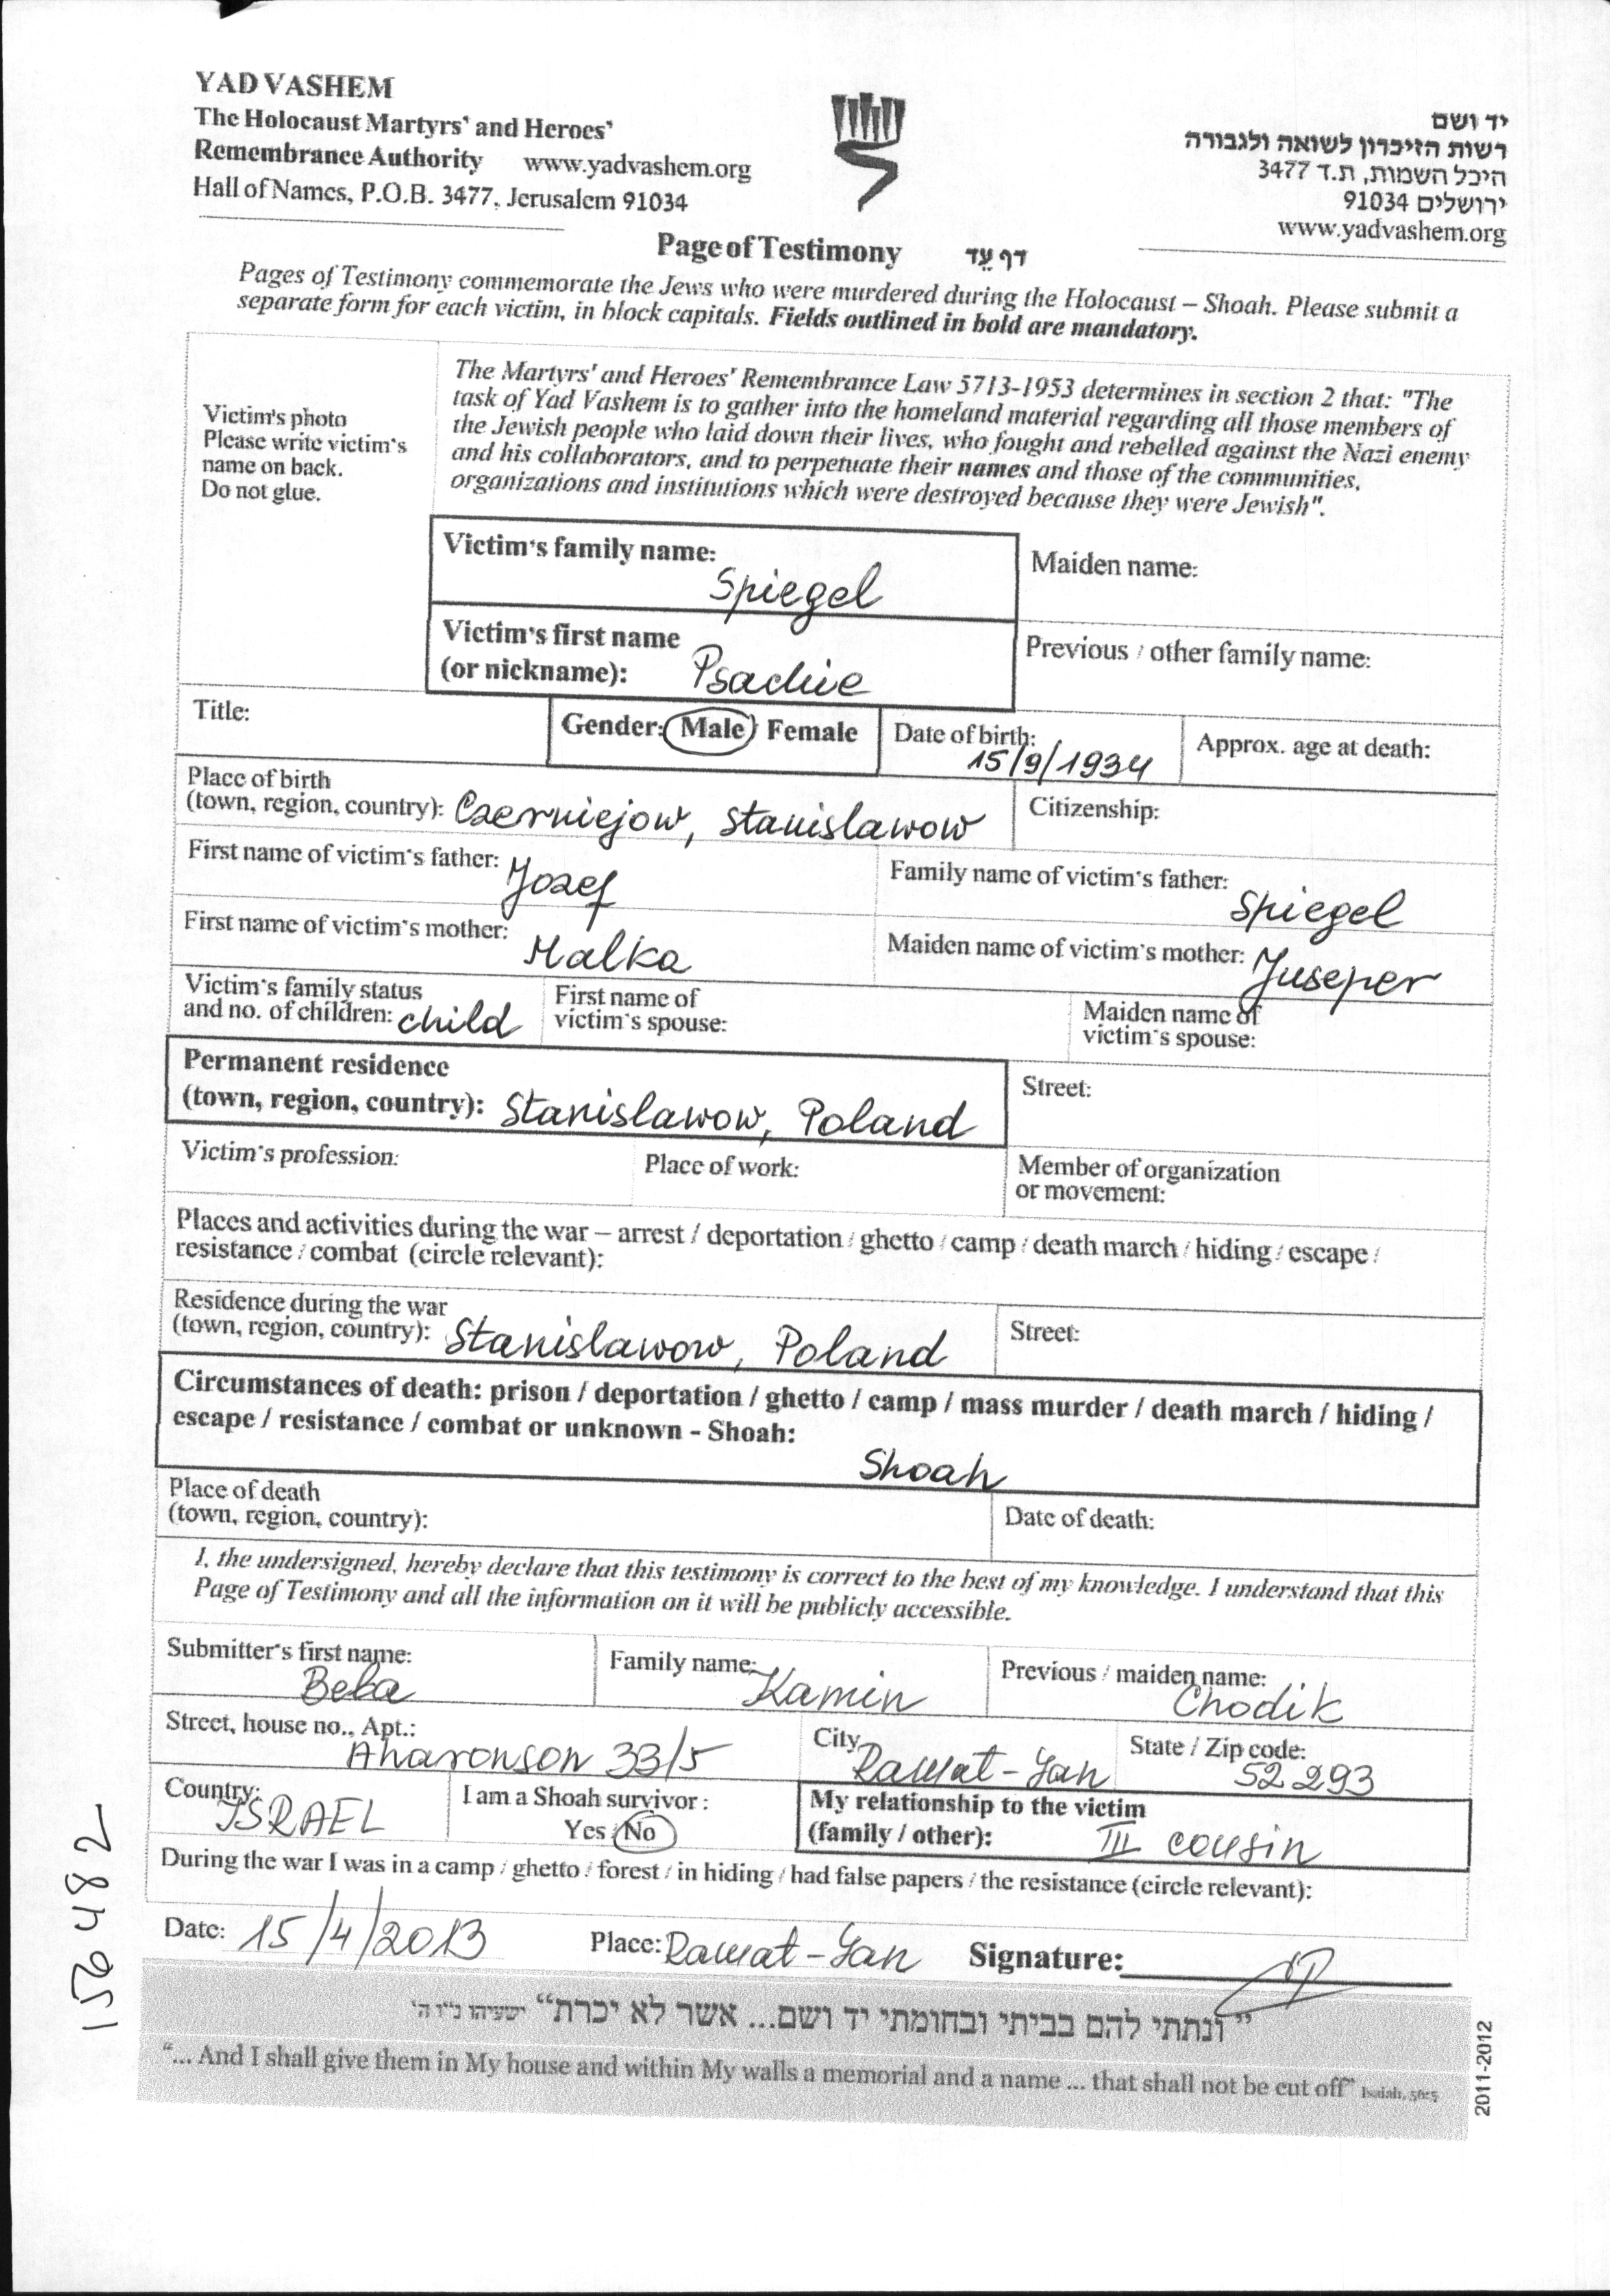 YAD VASHEM
The Holocaust Martyrs' and Heroes'
Remembrance Authority www.yadvashem.org
Hall of Names, P.O.B. 3477, Jerusalem 91034
יד ושם
רשות הזיכרון לשואה ולגבורה
היכל השמות, ת.ד 3477
ירושלים 91034
www.yadvashem.org
Page of Testimony דף עֵד
Pages of Testimony commemorate the Jews who were murdered during the Holocaust – Shoah. Please submit a
separate form for each victim, in block capitals. Fields outlined in bold are mandatory.
Victim's photo
Please write victim's
name on back.
Do not glue.
The Martyrs' and Heroes' Remembrance Law 5713-1953 determines in section 2 that: "The
task of Yad Vashem is to gather into the homeland material regarding all those members of
the Jewish people who laid down their lives, who fought and rebelled against the Nazi enemy
and his collaborators, and to perpetuate their names and those of the communities,
organizations and institutions which were destroyed because they were Jewish".
Victim's family name: Spiegel
Maiden name:
Victim's first name
(or nickname): Psachie
Previous / other family name:
Title:
Gender: Male / Female
Date of birth: 15/9/1934
Approx. age at death:
Place of birth
(town, region, country): Czerniejow, Stanislawow
Citizenship:
First name of victim's father: Jozef
Family name of victim's father: Spiegel
First name of victim's mother: Malka
Maiden name of victim's mother: Juseper
Victim's family status
and no. of children: child
First name of
victim's spouse:
Maiden name of
victim's spouse:
Permanent residence
(town, region, country): Stanislawow, Poland
Street:
Victim's profession:
Place of work:
Member of organization
or movement:
Places and activities during the war – arrest / deportation / ghetto / camp / death march / hiding / escape /
resistance / combat (circle relevant):
Residence during the war
(town, region, country): Stanislawow, Poland
Street:
Circumstances of death: prison / deportation / ghetto / camp / mass murder / death march / hiding /
escape / resistance / combat or unknown - Shoah:
Shoah
Place of death
(town, region, country):
Date of death:
I, the undersigned, hereby declare that this testimony is correct to the best of my knowledge. I understand that this
Page of Testimony and all the information on it will be publicly accessible.
Submitter's first name: Beba
Family name: Kamin
Previous / maiden name: Chodik
Street, house no., Apt.: Aharonson 33/5
City Ramat-Gan
State / Zip code: 52 293
Country: ISRAEL
I am a Shoah survivor :
Yes / No
My relationship to the victim
(family / other): III cousin
During the war I was in a camp / ghetto / forest / in hiding / had false papers / the resistance (circle relevant):
Date: 15/4/2013 Place: Ramat-Gan Signature:
"ונתתי להם בביתי ובחומתי יד ושם... אשר לא יכרת" ישעיהו נ"ו ה'
"... And I shall give them in My house and within My walls a memorial and a name ... that shall not be cut off" Isaiah, 56:5
2011-2012
156482